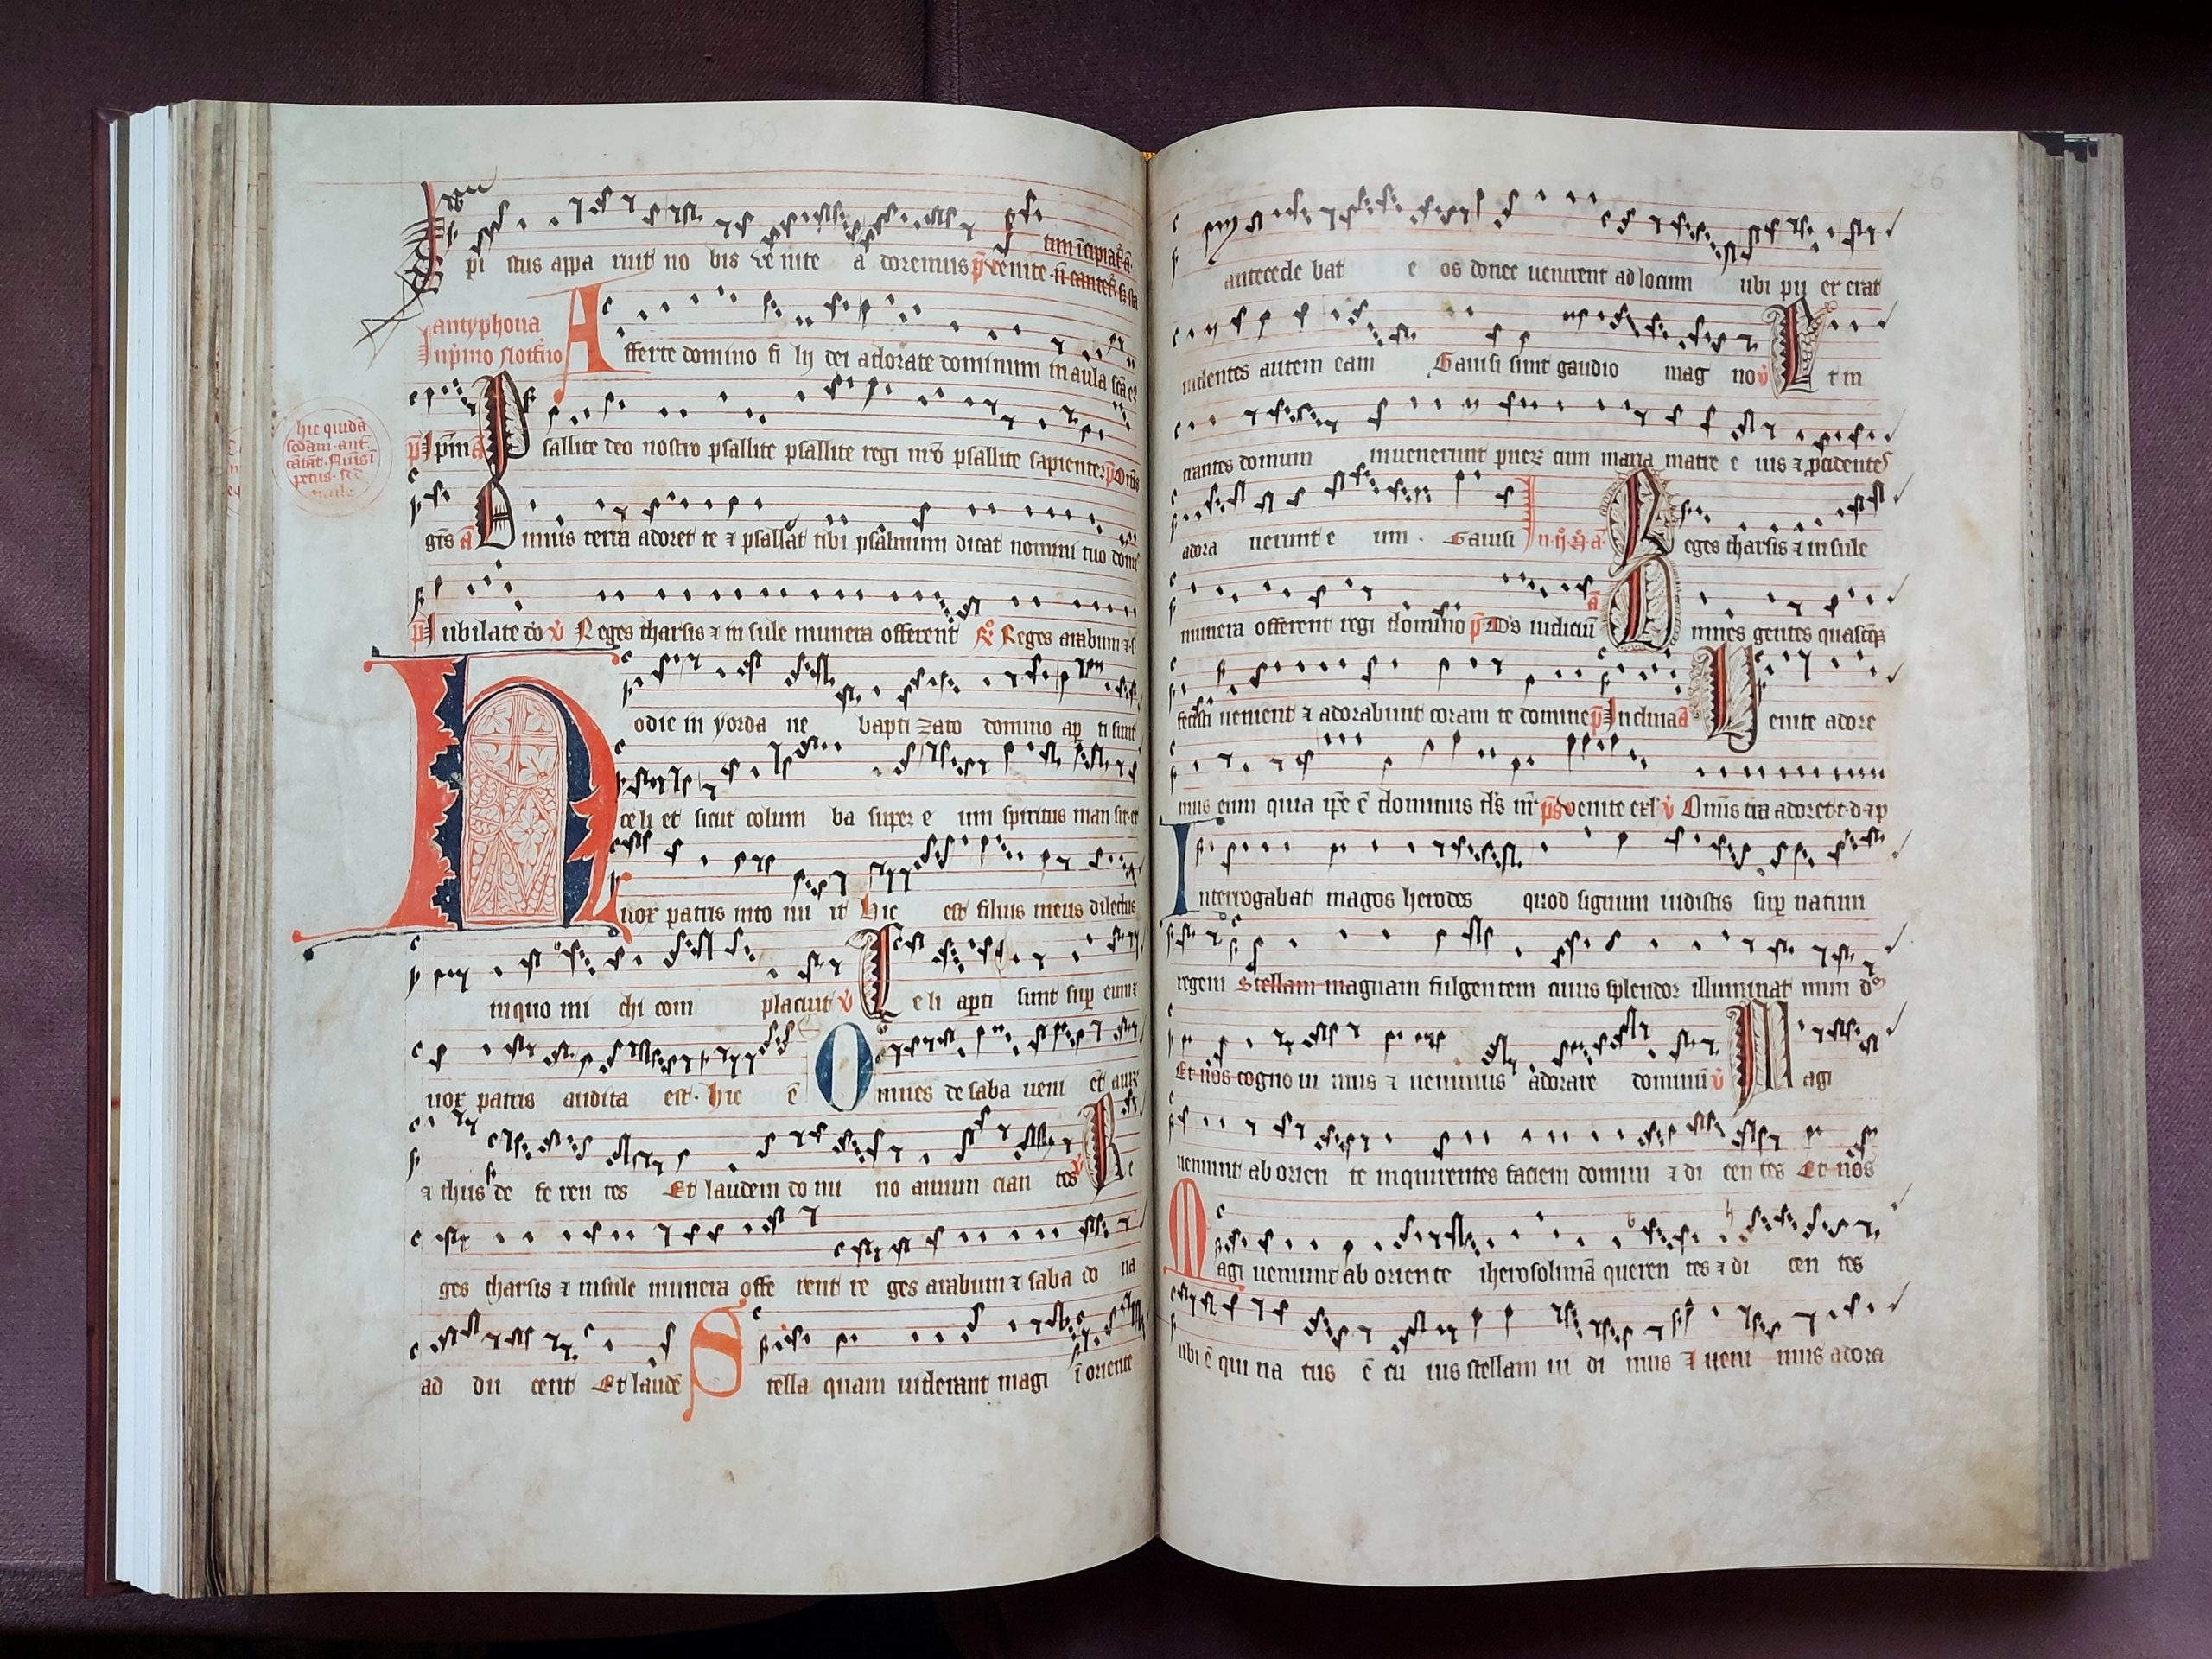 50
pi stus appa ruit no bis Ve nite a doremus p̄ venite
tim īcipiat̄ a
antyphona
In pͥmo noct̄no
A fferte domino fi lij dei adorate dominum in aula sc̄a eꝰ
P sallite deo nostro psallite psallite regi nr̄o psallite sapienter p̄ Om̄s
hic quidā
cātāt
gn̄s ā O mnis terra adoret te ⁊ psallat tibi psalmum dicat nomini tuo domīe
p̄ Iubilate do v̓ Reges tharsis ⁊ insule munera offerent R̓ Reges arabum ⁊ s
H odie in yorda ne bapti zato domino ap ti sunt
celi et sicut colum ba super e um spiritus man sit et
uox patris into nu it Hic est filius meus dilectus
inquo mi chi com placuit v̓ C e li apti sunt sup eum ⁊
uox patris audita est. hic ē O mnes de saba veni ēt aurū
⁊ thus de fe ren tes Et laudem do mi no annun cian tes v̓ R e
ges tharsis ⁊ insule munera offe rent re ges arabum ⁊ saba do na
ad du cent Et laudē S tella quam uiderant magi ī oriente
36
antecede bat e os donec uenirent ad locum ubi pu er erat
uidentes autem eam Gauisi sunt gaudio mag no v̓ E t in
trantes domum inuenerunt puerꝝ cum maria matre e ius ⁊ p̄cidentes
adora uerunt e um . Gauisi In ij ā R eges tharsis ⁊ insule
munera offerent regi domino p̄ Ds̄ iudiciū ā O mnes gentes quascūqꝫ
fecisti uenient ⁊ adorabunt coram te domine p̄ Inclina ā V enite adore
mus eum quia ip̄e ē dominus ds̄ nr̄ ps̄ venite exl̄ v̓ Om̄is tr̄a adoret t. d ⁊ p
I nterrogabat magos herodes quod signum uidistis sup natum
regem Stellam magnam fulgentem cuius splendor illuminat mun dū
Et nos cogno ui mus ⁊ uenimus adorare dominū v̓ M agi
ueniunt ab orien te inquirentes faciem domini ⁊ di cen tes Et nos
M agi ueniunt ab oriente iherosolimā queren tes ⁊ di cen tes
ubi ē qui na tus ē cu ius stellam ui di mus ⁊ ueni mus adora